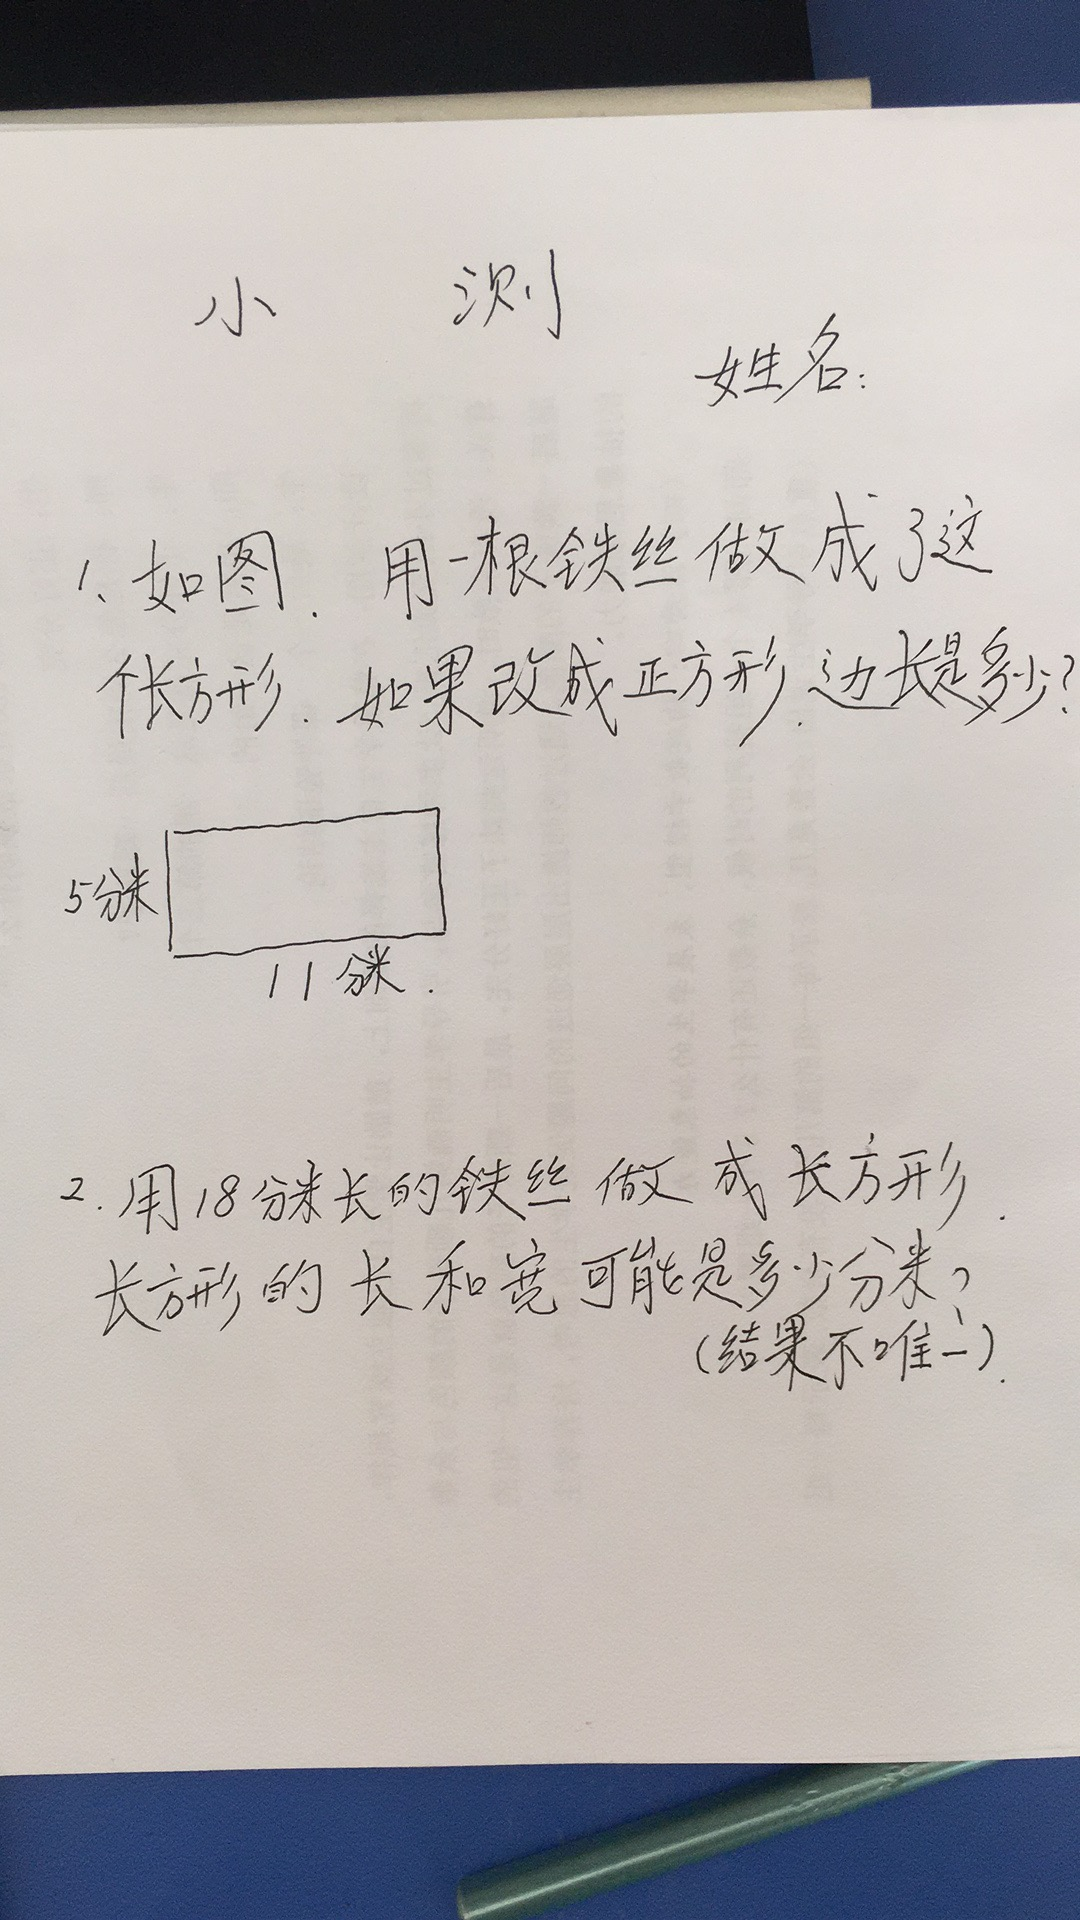 小 测
姓名:
1、如图.用一根铁丝做成了这
个长方形.如果改成正方形.边长是多少?
5分米
11分米.
2.用18分米长的铁丝做成长方形.
长方形的长和宽可能是多少分米?
(结果不唯一).